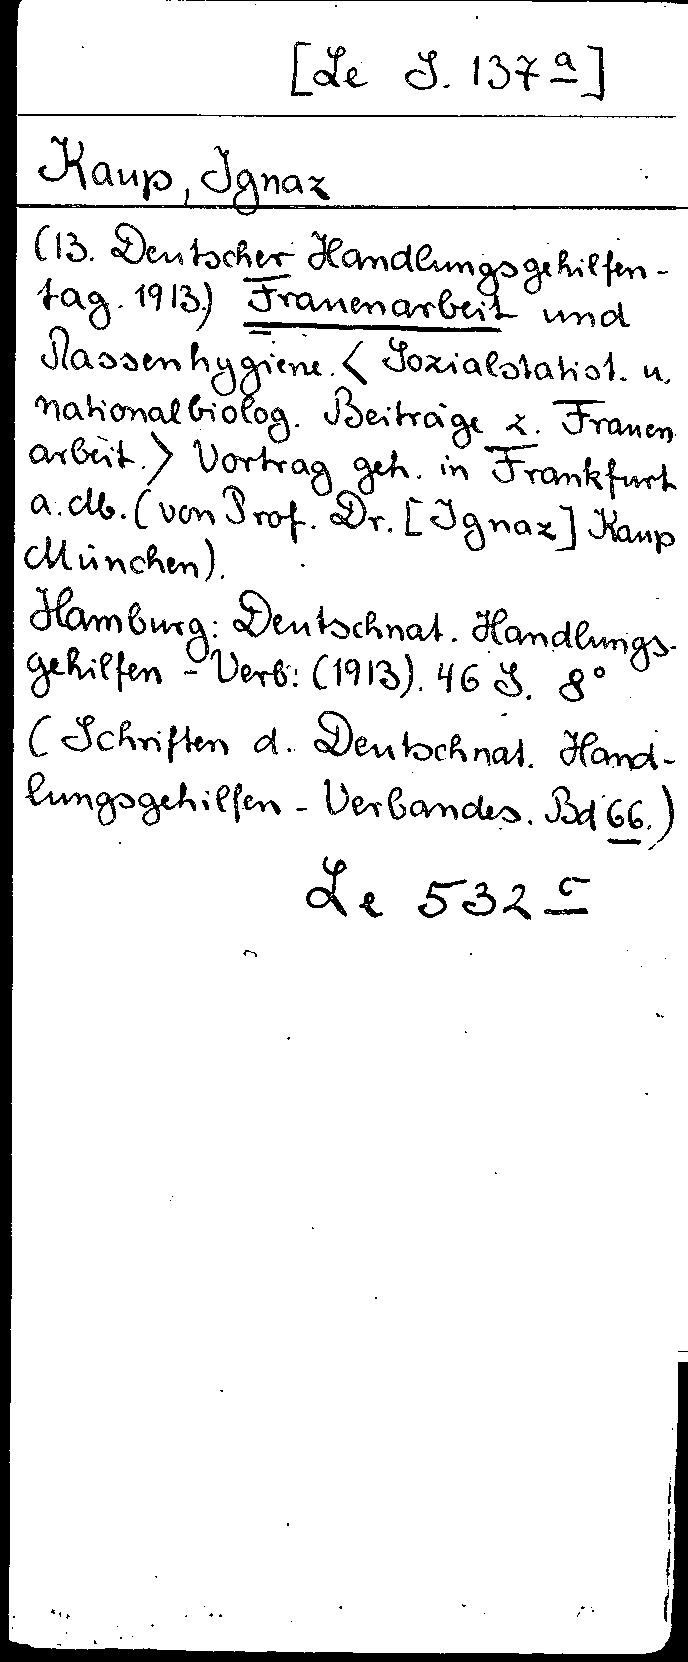 [Le S. 137ª]
Kaup, Ignaz
(13. Deutscher Handlungsgehilfen-
tag. 1913.) Frauenarbeit und
Rassenhygiene. < Sozialstatist. u.
nationalbiolog. Beiträge z. Frauen
arbeit.> Vortrag geh. in Frankfurt
a. M. (von Prof. Dr. [Ignaz] Kaup
München).
Hamburg: Deutschnat. Handlungs-
gehilfen - Verb: (1913). 46 S. 8°
(Schriften d. Deutschnat. Hand-
lungsgehilfen - Verbandes. Bd 66.)
Le 532 c